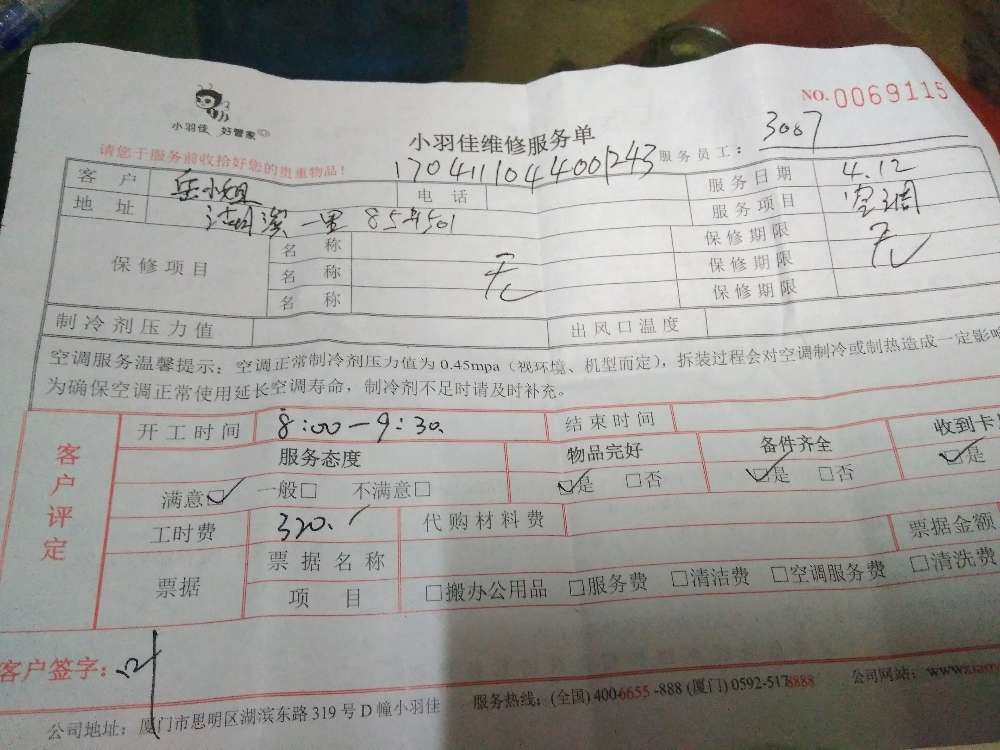 NO.0069115
小羽佳 好管家
小羽佳维修服务单
请您于服务前收拾好您的贵重物品！
1704111044001243
服务员工：3007
客户 岳小姐 电话 服务日期 4.12
地址 湖滨一里85号501 服务项目 空调
保修项目 名称 无 保修期限 无
名称 保修期限
名称 保修期限
制冷剂压力值 出风口温度
空调服务温馨提示：空调正常制冷剂压力值为 0.45mpa（视环境、机型而定），拆装过程会对空调制冷或制热造成一定影响
为确保空调正常使用延长空调寿命，制冷剂不足时请及时补充。
客户评定
开工时间 8:00-9:30 结束时间
服务态度 物品完好 备件齐全 收到卡
满意☑ 一般□ 不满意□ ☑是 □否 ☑是 □否 ☑是
工时费 320. 代购材料费 票据金额
票据 票据名称
项目 □搬办公用品 □服务费 □清洁费 □空调服务费 □清洗费
客户签字：叶
公司地址：厦门市思明区湖滨东路 319 号 D 幢小羽佳 服务热线：(全国) 400-6655-888 (厦门) 0592-5178888 公司网站：www.xiao